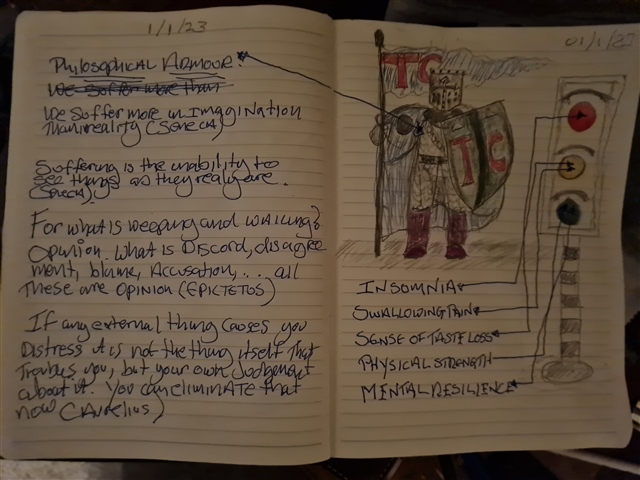 1/1/23
PHILOSOPHICAL ARMOUR:
WE SUFFER more than
WE SUFFER MORE IN IMAGINATION
THAN REALITY (SENECA)
SUFFERING is the inability to
see things as they really are.
For what is weeping and wailing?
Opinion. What is Discord, disagree
ment, blame, Accusation, .... all
These are OPINION (EPICTETOS)
If any external thing causes you
Distress it is not the thing itself that
Troubles you, but your own Judgement
about it. You can eliminate that
now (Aurelius)
01/1/23
TC
TC
INSOMNIA
SWALLOWING PAIN
SENSE OF TASTE LOSS
PHYSICAL STRENGTH
MENTAL RESILIENCE